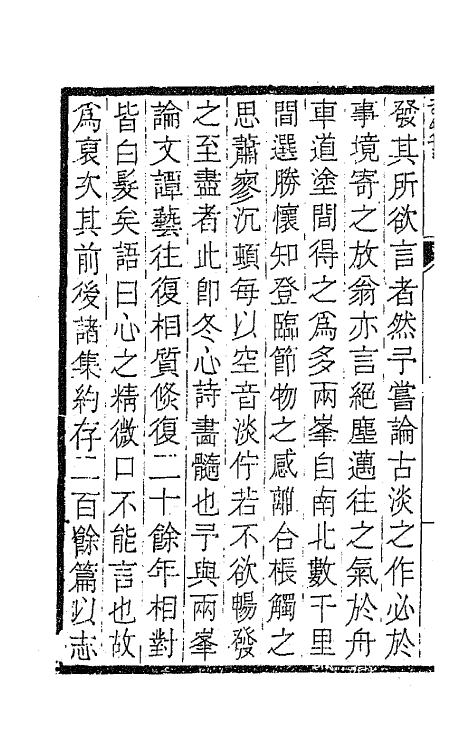 發其所欲言者然予嘗論古淡之作必於
事境寄之放翁亦言絕塵邁往之氣於舟
車道塗間得之為多兩峯自南北數千里
間選勝懷知登臨節物之感離合棖觸之
思蕭寥沉頓每以空音淡佇若不欲暢發
之至盡者此卽冬心詩畵髓也予與兩峯
論文譚藝往復相質倏復二十餘年相對
皆白髮矣語曰心之精微口不能言也故
為裒次其前後諸集約存二百餘篇以志